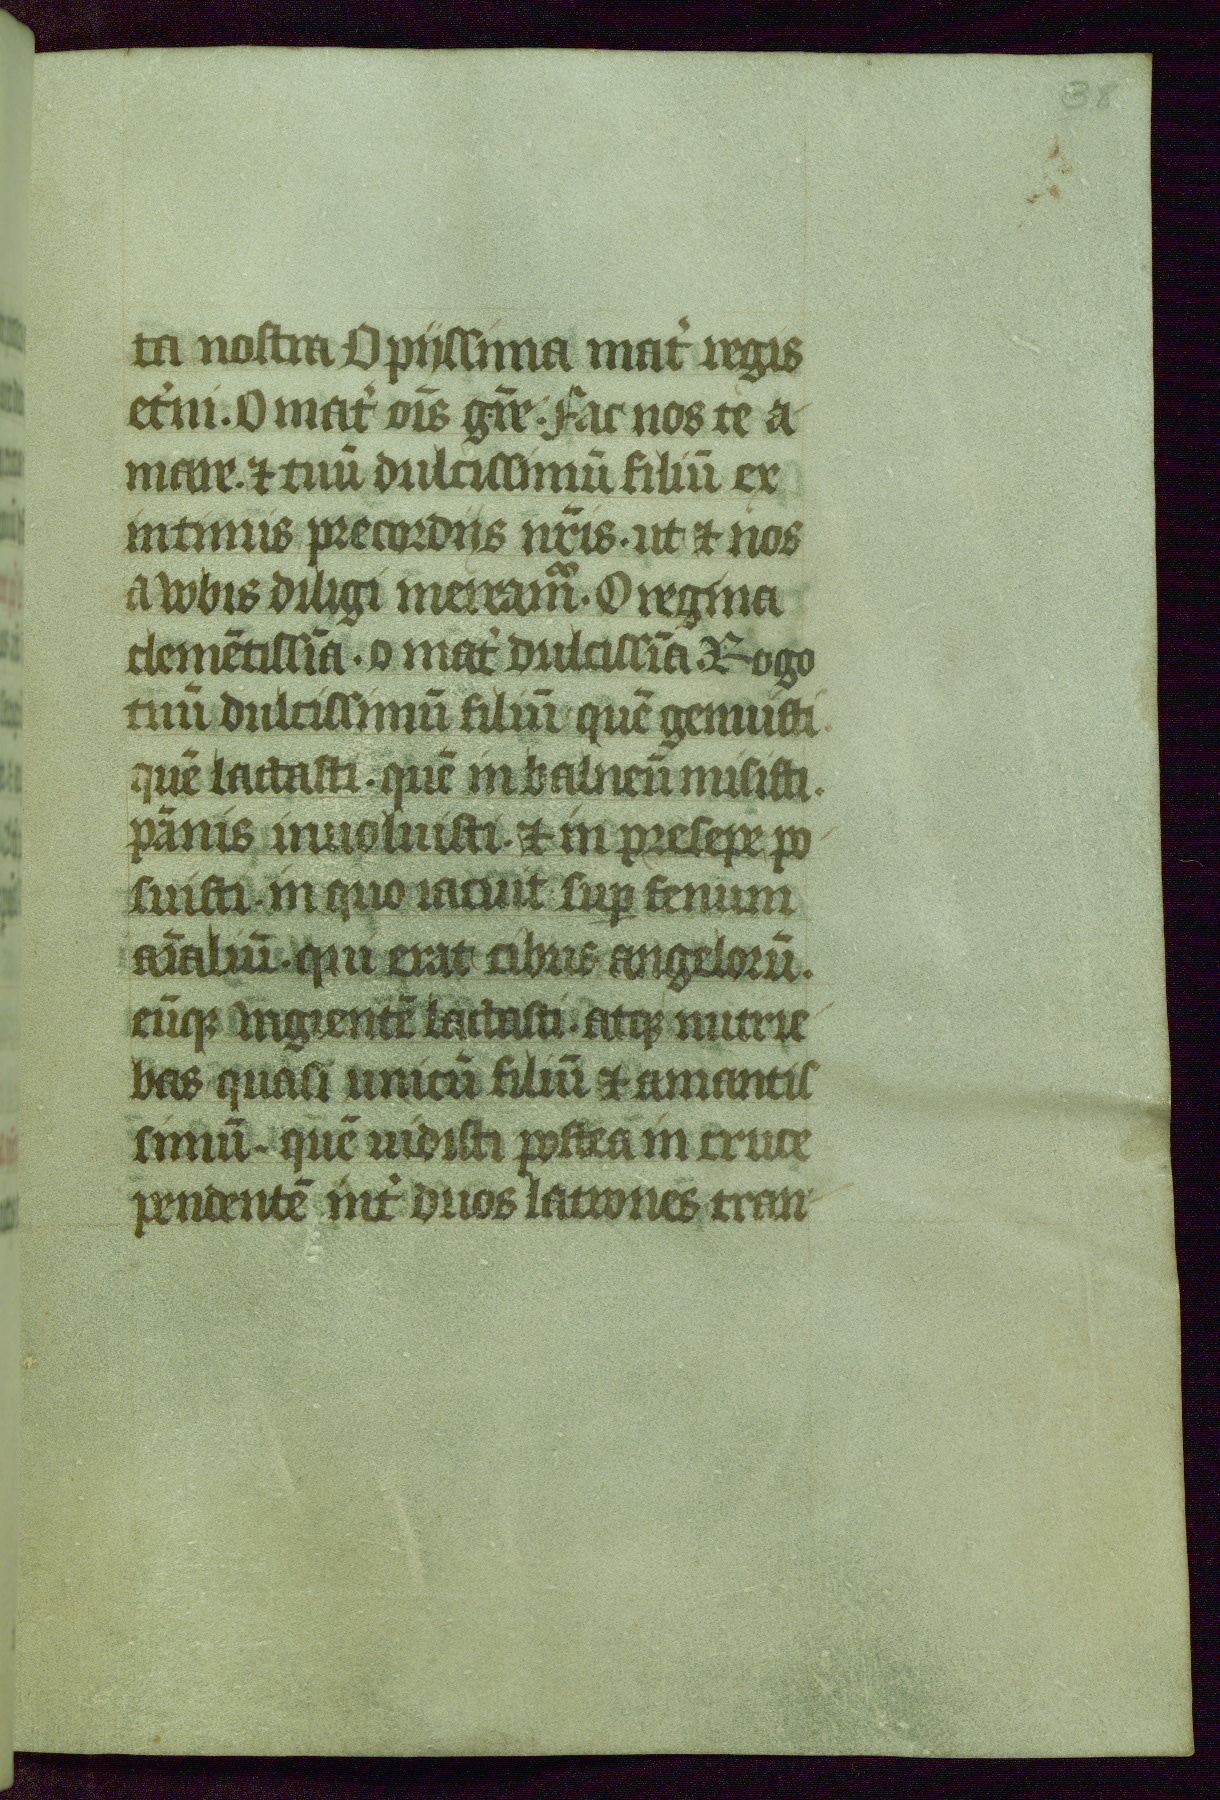 38
ta nostra O pijssima mat̉ regis
et̉ni. O mat̉ oīs gr̄e. Fac nos te a
mare. ⁊ tuū dulcissimū filiū ex
intimis precordijs nr̄is. ut ⁊ nos
a vobis diligi meream̄. O regina
clemētissīa. o mat̉ dulcissīa. Rogo
tuū dulcissimū filiū quē genuisti.
quē lactasti. quē in balneū misisti.
pānis inuoluisti. ⁊ in presepe po
suisti. in quo iacuit sup fenum
aīaliū. qui erat cibus angelorū.
eūqꝫ vagientē lactasti. atqꝫ nutrie
bas quasi unicū filiū ⁊ amantis
simū. quē uidisti postea in cruce
pendentē int̉ duos latrones tran